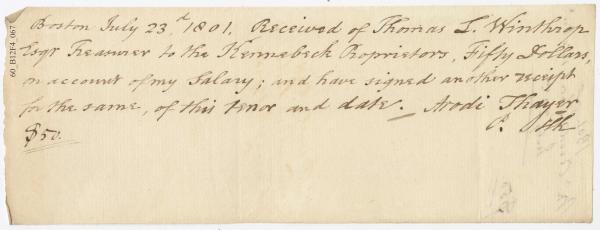 Boston July 23.d 1801. Received of Thomas L. Winthrop
Esqr Treasurer to the Kennebeck Proprietors, Fifty Dollars,
on account of my Salary; and have signed another receipt
for the same, of this tenor and date. — Arodi Thayer
$50.
P. Clk
60_B12F4_067